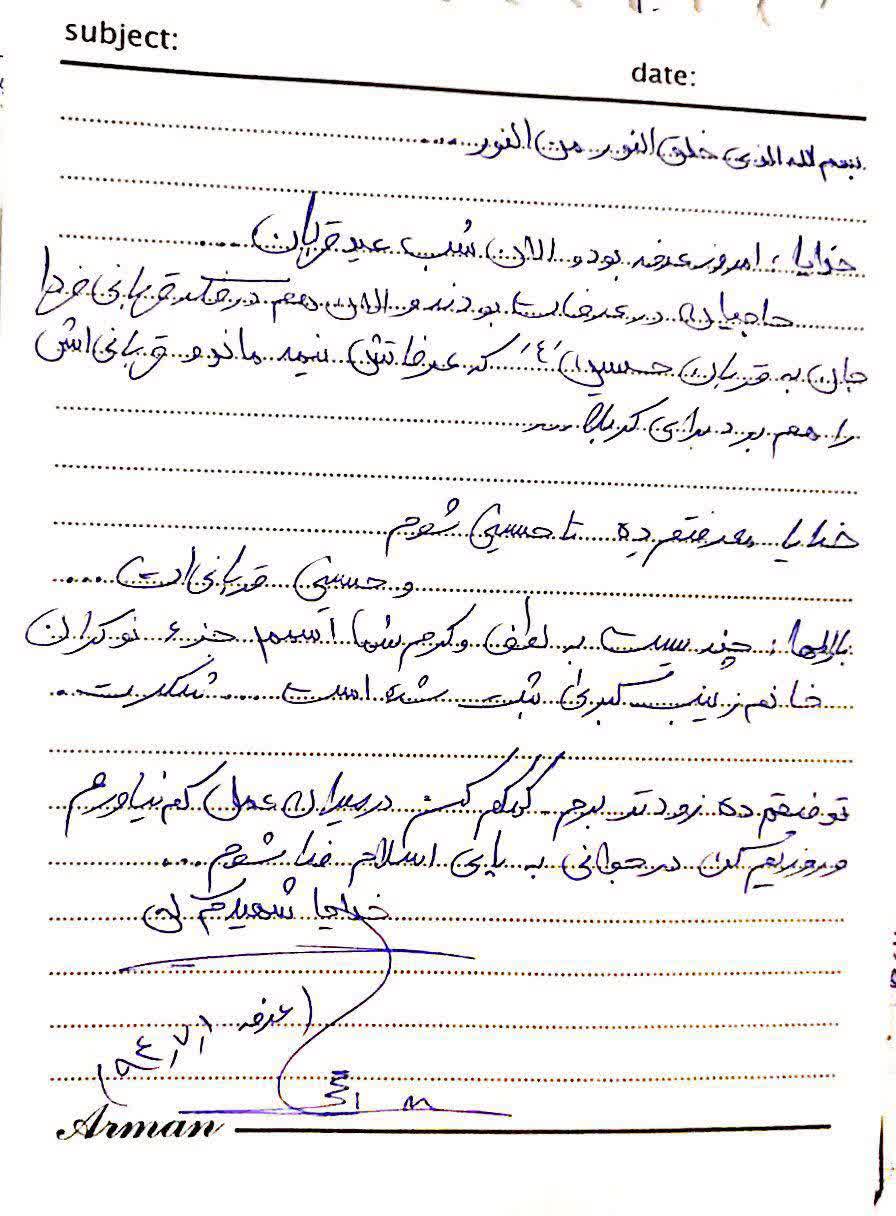 subject:
date:
بسم الله الذی خلق النور من النور ....
خدایا ؛ امروز عرفه بود و الان شب عید قربان ....
حاجیان در عرفات بودند و الان هم در فکر قربانی فردا
جان به قربان حسین (ع) که عرفاتش نیمه ماند و قربانی اش
را هم برد برای کربلا ...
خدایا معرفتم ده تا حسینی شوم
و حسینی قربانی ات ....
بارالها ؛ چندیست به لطف و کرم شما اسمم جزء نوکران
خانم زینب کبری ثبت شده است .... شکرت.
توفیقم ده زودتر برم. کمکم کن در میدان عمل کم نیاورم
و روزیم کن در جوانی به پای اسلام فدا شوم ...
خدایا شهیدم کن
(عرفه ۹۴٫۷٫۱)
Arman